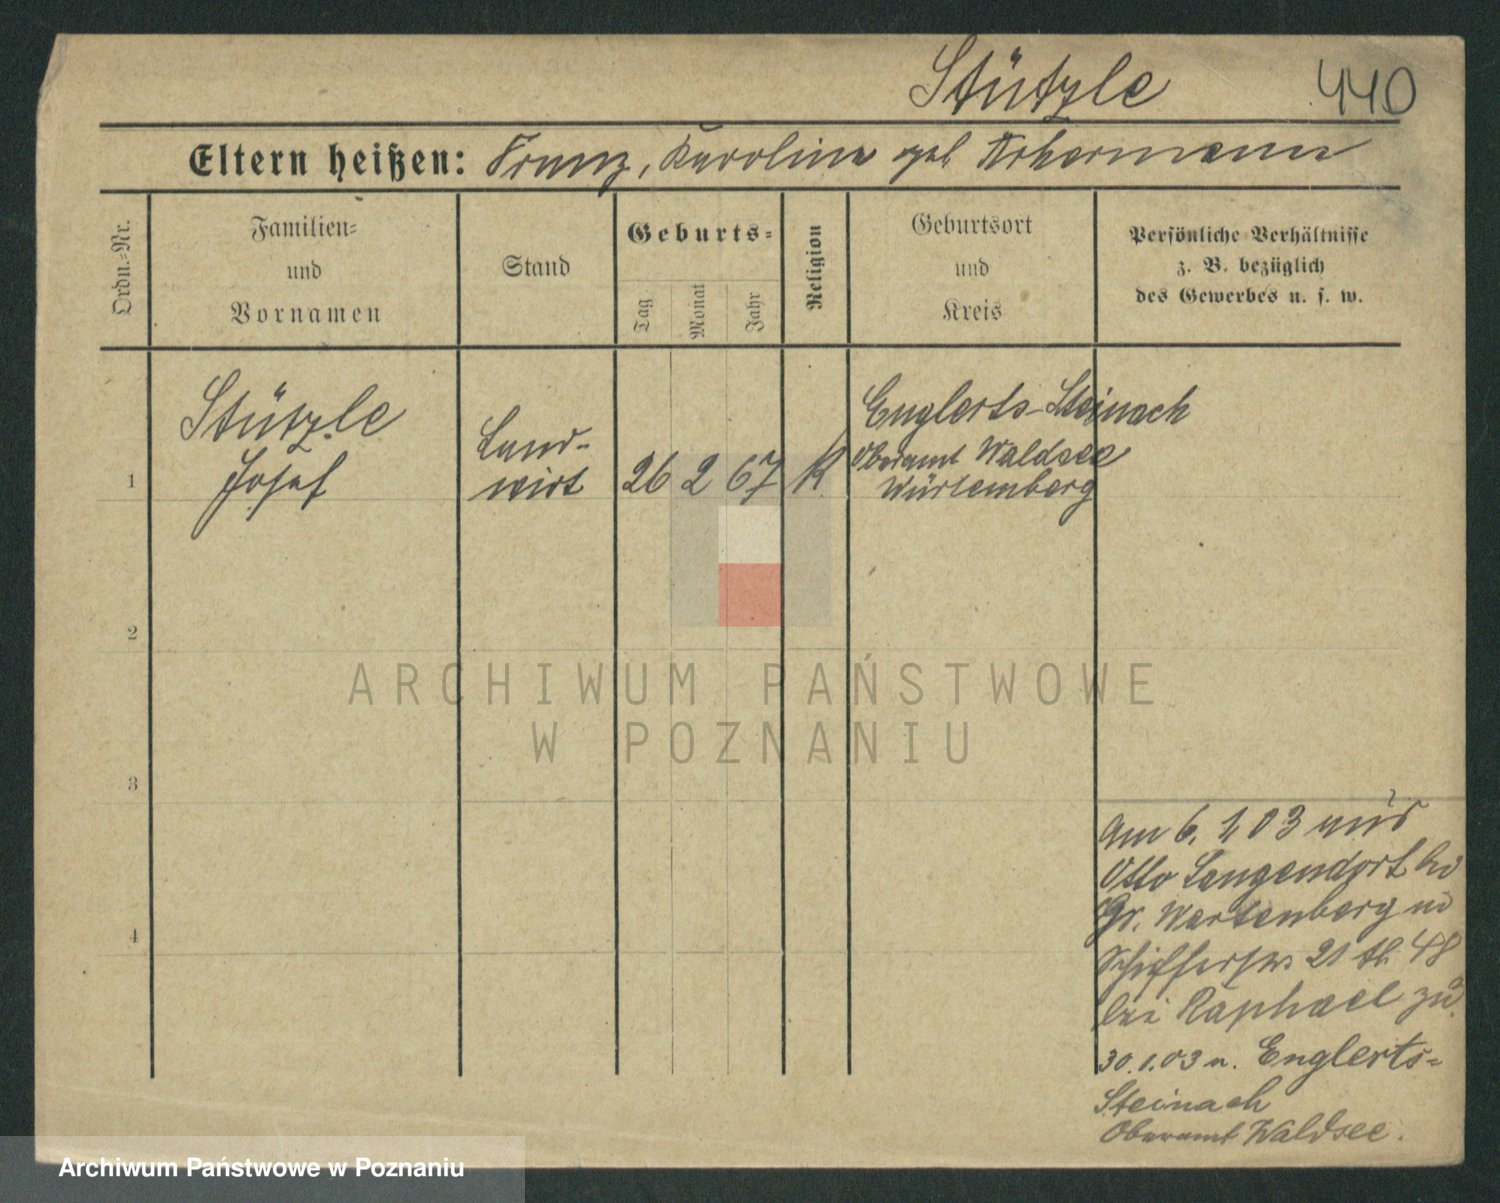 Stützle
440
Eltern heißen: Franz, Karoline geb Ackermann
Ordn.-Nr.
Familien-
und
Vornamen
Stand
Geburts-
Tag
Monat
Jahr
Religion
Geburtsort
und
Kreis
Persönliche Verhältnisse
z. B. bezüglich
des Gewerbes u. s. w.
1
Stützle
Josef
Land-
wirt
26 2 67 K
Englerts-Steinach
Oberamt Waldsee
Würtemberg
2
3
4
am 6. 1 03 aus
Otto Langendorf
Gr. Wartenberg
21 48
bei Raphael zu.
30.1.03 n. Englerts-
Steinach
Oberamt Waldsee.
ARCHIWUM PAŃSTWOWE
W POZNANIU
Archiwum Państwowe w Poznaniu